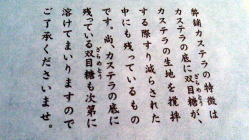 弊舗カステラの特徴は
カステラの底に双目糖が、
ざらめとう
カステラの生地を撹拌
する際すり減らされた
中にも残っているもの
です。尚、カステラの底に
残っている双目糖も次第に
ざらめとう
溶けてまいりますので
ご了承くださいませ。